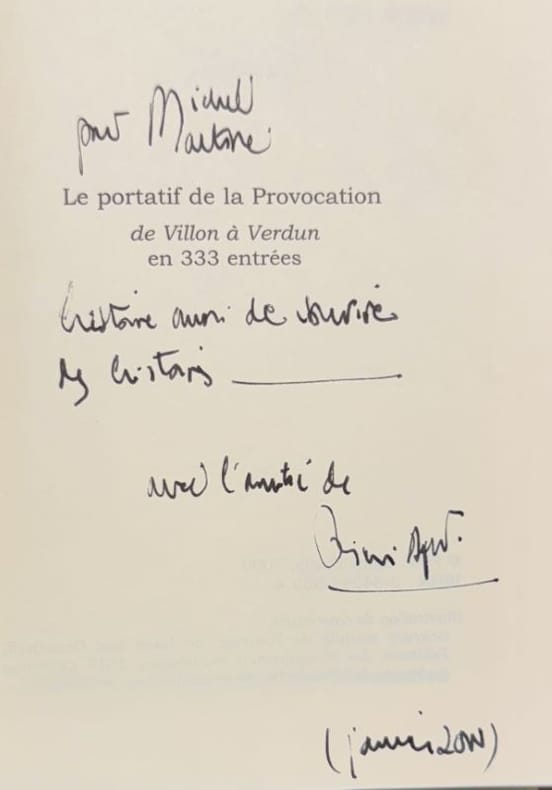 pour Michel
Martine
Le portatif de la Provocation
de Villon à Verdun
en 333 entrées
histoire aussi de sourire
des histoires
avec l'amitié de
(janvier 2000)